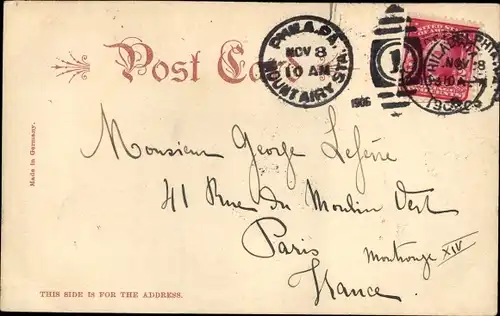 Post Card
PHILA. PA.
NOV 8
10 AM
MOUNT AIRY STA.
1906
1
NOV 8
Made in Germany.
Monsieur George Lefèvre
41 Rue du Moulin Vert
Paris Montrouge XIV
France
THIS SIDE IS FOR THE ADDRESS.